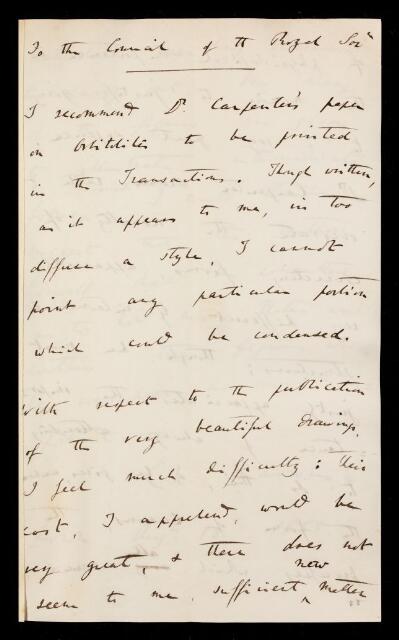 To the Council of th Royal Socy
I recommend Dr. Carpenter's paper
on Orbitolites to be printed
in the Transactions. Though written,
as it appears to me, in too
diffuse a style, I cannot
point any particular portion
which could be condensed.
With respect to the publication
of the very beautiful drawings,
I feel much difficulty: their
cost, I apprehend, would be
very great, & there does not
new
seem to me sufficient ^ matter